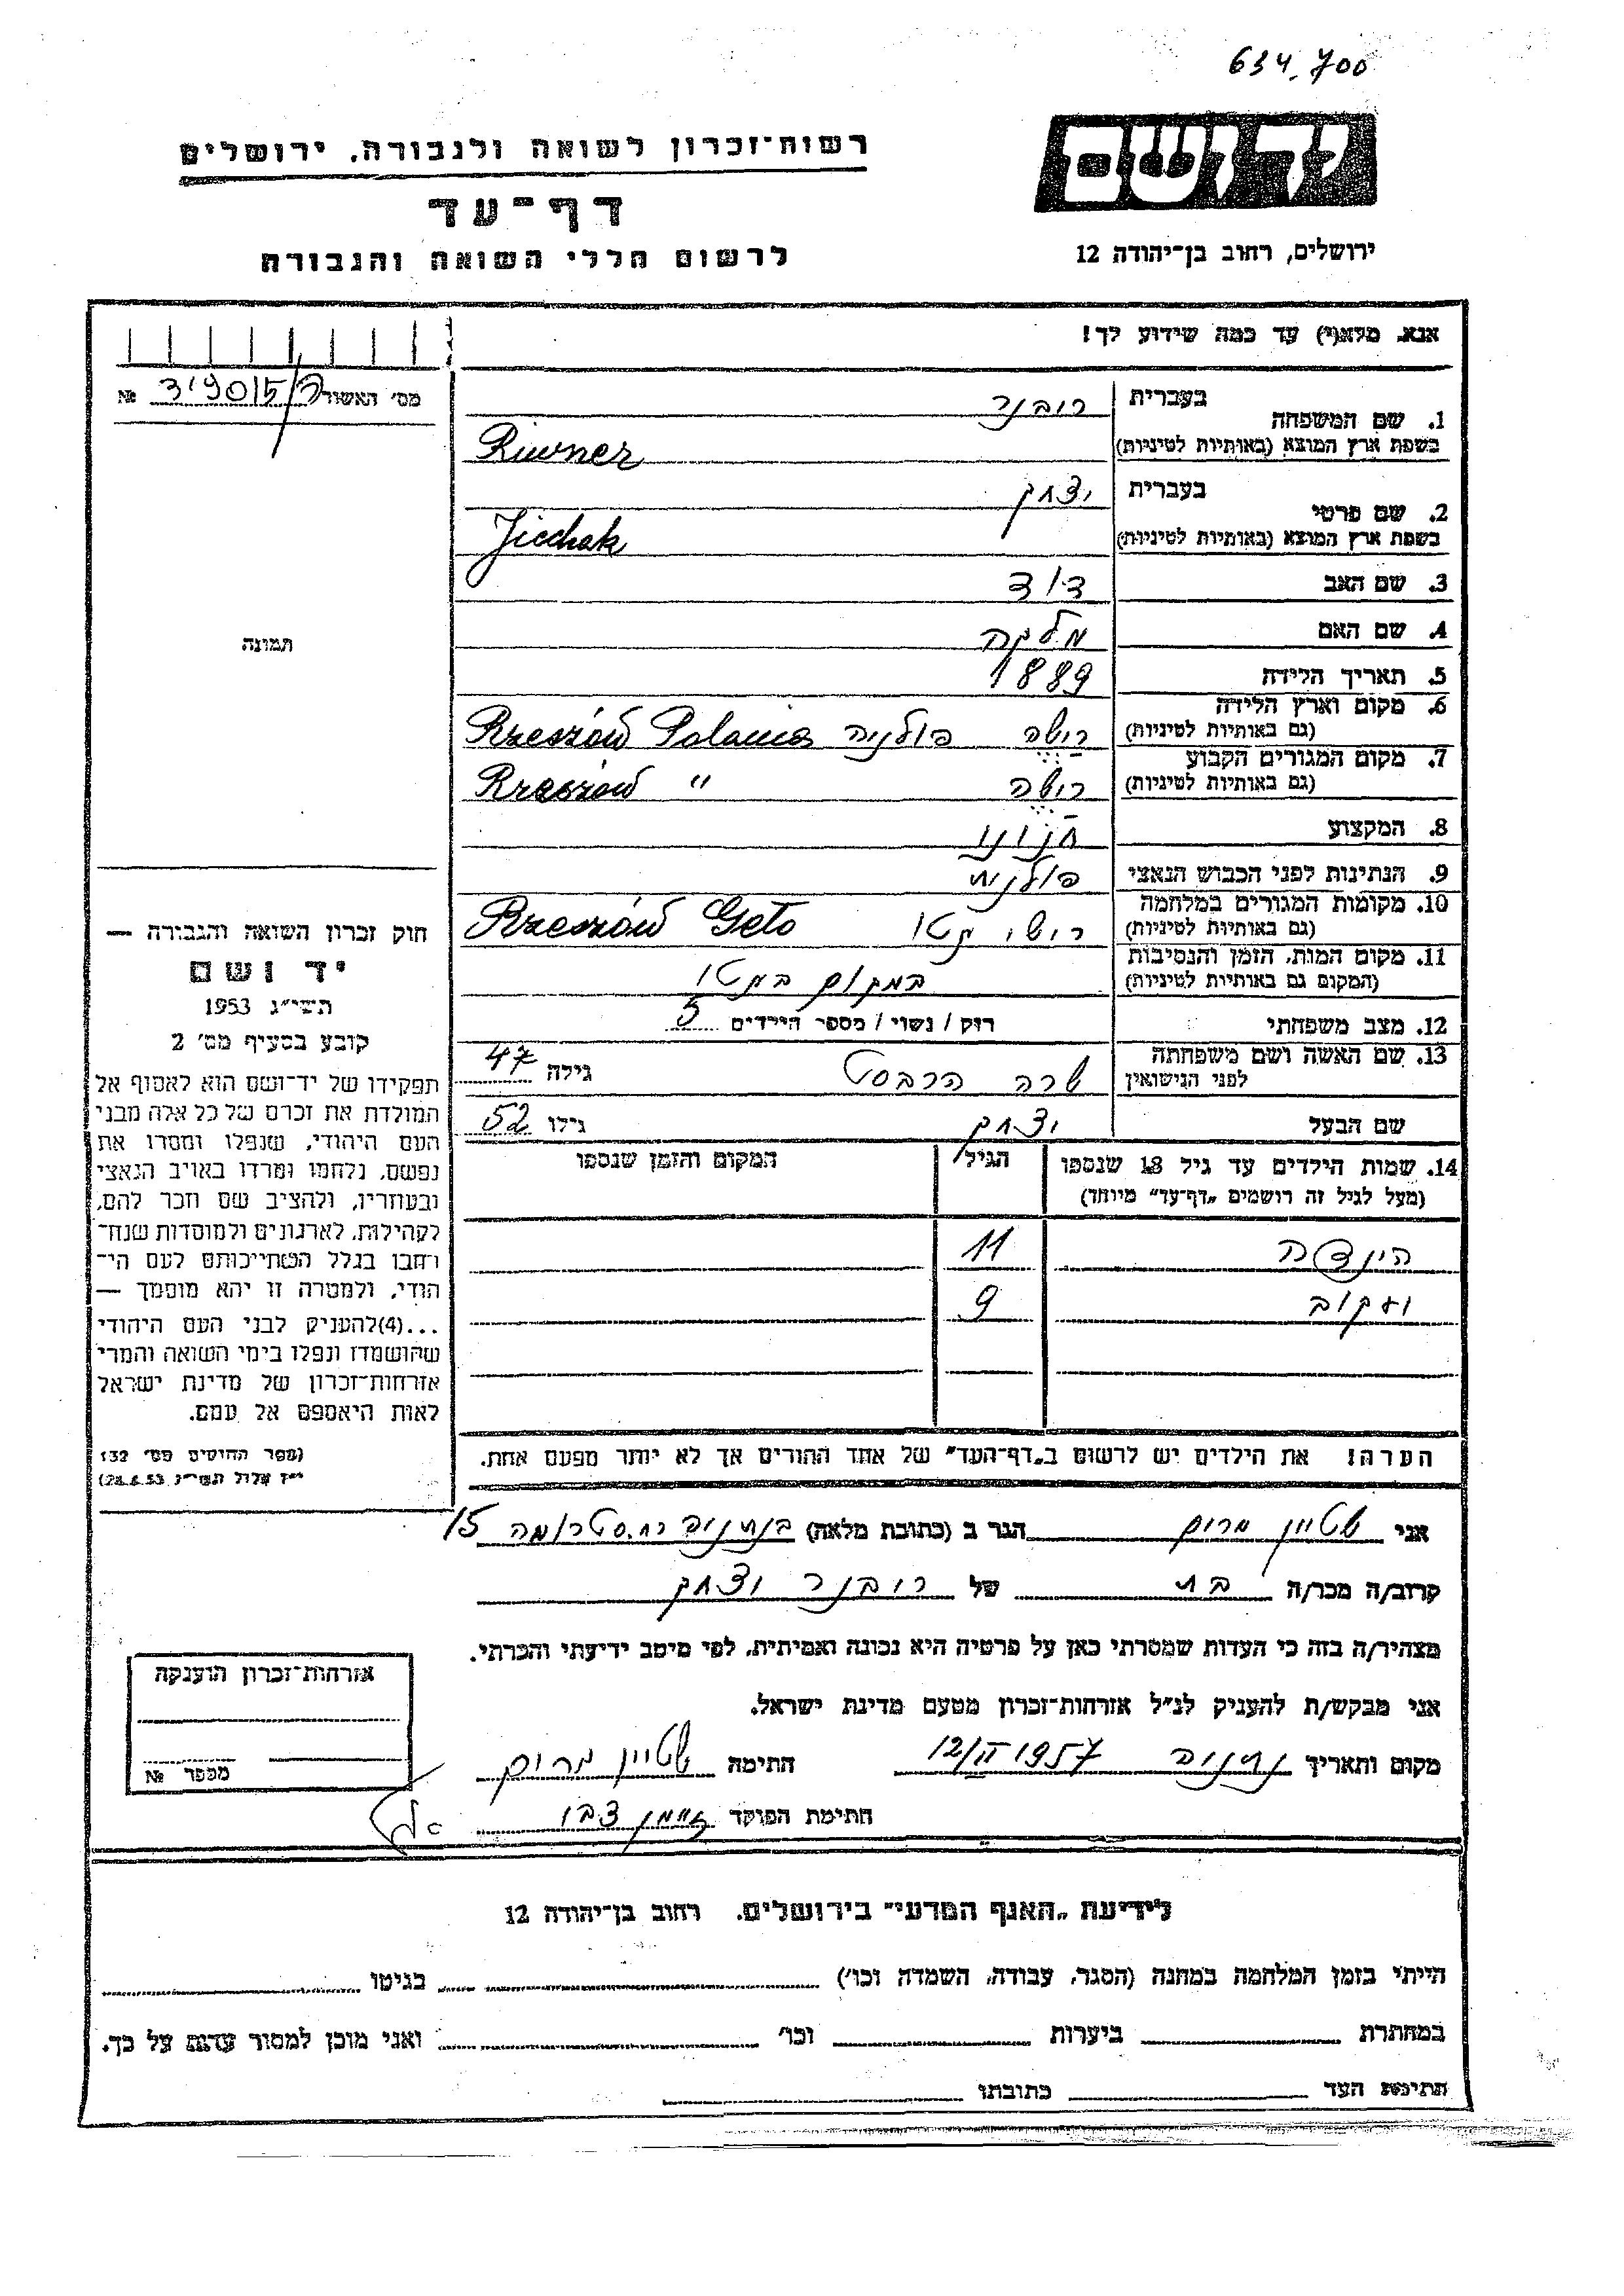 634,700
יד ושם
ירושלים, רחוב בן־יהודה 12
רשות־זכרון לשואה ולגבורה, ירושלים
דף־עד
לרשום חללי השואה והגבורה
אנא, מלא(י) עד כמה שידוע לך!
מס' האשור
№
1. שם המשפחה
בעברית
רובנר
בשפת ארץ המוצא (באותיות לטיניות)
Riwner
2. שם פרטי
בעברית
יצחק
בשפת ארץ המוצא (באותיות לטיניות)
Jicchak
3. שם האב
דוד
4. שם האם
מלכה
5. תאריך הלידה
1889
6. מקום וארץ הלידה
(גם באותיות לטיניות)
רישה פולניה Rzeszów Polania
7. מקום המגורים הקבוע
(גם באותיות לטיניות)
רישה " Rzeszów
8. המקצוע
חנוני
9. הנתינות לפני הכבוש הנאצי
פולנית
10. מקומות המגורים במלחמה
(גם באותיות לטיניות)
רישה גטו Rzeszów Geto
11. מקום המות, הזמן והנסיבות
(המקום גם באותיות לטיניות)
במקום בגטו
12. מצב משפחתי
רוק / נשוי / מספר הילדים 5
13. שם האשה ושם משפחתה
לפני הנישואין
שרה הרבסט גילה 47
שם הבעל
יצחק גילו 52
14. שמות הילדים עד גיל 18 שנספו
(מעל לגיל זה רושמים „דף־עד" מיוחד)
הגיל
המקום והזמן שנספו
הינדה 11
יעקוב 9
הערה! את הילדים יש לרשום ב„דף־העד" של אחד ההורים אך לא יותר מפעם אחת.
תמונה
חוק זכרון השואה והגבורה —
יד ושם
תשי"ג 1953
קובע בסעיף מס' 2
תפקידו של יד־ושם הוא לאסוף אל
המולדת את זכרם של כל אלה מבני
העם היהודי, שנפלו ומסרו את
נפשם, נלחמו ומרדו באויב הנאצי
ובעוזריו, ולהציב שם וזכר להם,
לקהילות, לארגונים ולמוסדות שנח־
רחבו בגלל השתייכותם לעם הי־
הודי, ולמטרה זו יהא מוסמך —
...(4)להעניק לבני העם היהודי
שהושמדו ונפלו בימי השואה והמרי
אזרחות־זכרון של מדינת ישראל
לאות היאספם אל עמם.
(ספר החוקים מס' 132
י"ז אלול תשי"ג, 28.8.53)
אני שטיין מרים הגר ב (כתובת מלאה) בנתניה רח. סטרומה 15
קרוב/ה מכר/ה בת של רובנר יצחק
מצהיר/ה בזה כי העדות שמסרתי כאן על פרטיה היא נכונה ואמיתית, לפי מיטב ידיעתי והכרתי.
אני מבקש/ת להעניק לנ"ל אזרחות־זכרון מטעם מדינת ישראל.
מקום ותאריך נתניה 12/II 1957 חתימה שטיין מרים
חתימת הפוקד
אזרחות־זכרון הוענקה
מספר №
לידיעת „האגף המדעי" בירושלים, רחוב בן־יהודה 12
הייתי בזמן המלחמה במחנה (הסגר, עבודה, השמדה וכו') בגיטו
במחתרת ביערות וכו' ואני מוכן למסור עדות על כך.
חתימת העד כתובתו